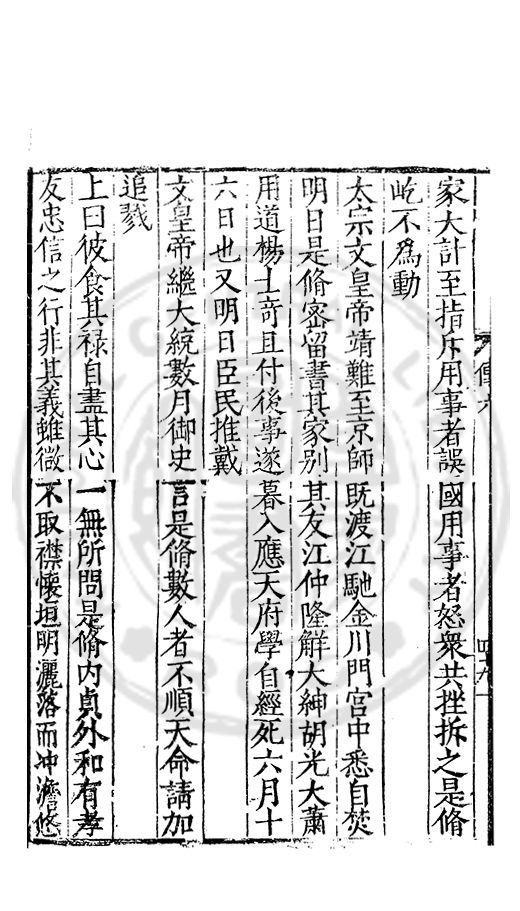 家大計至指斥用事者誤國用事者怒衆共挫折之是脩
屹不爲動
太宗文皇帝靖難至京師既渡江馳金川門宮中悉自焚
明日是脩密留書其家别其友江仲隆解大紳胡光大蕭
用道楊士竒且付後事遂暮入應天府學自經死六月十
六日也又明日臣民推戴
文皇帝繼大統數月御史言是脩數人者不順天命請加
追戮
上曰彼食其禄自盡其心一無所問是脩内貞外和有孝
友忠信之行非其義雖微不取襟懷坦明灑落而冲澹悠